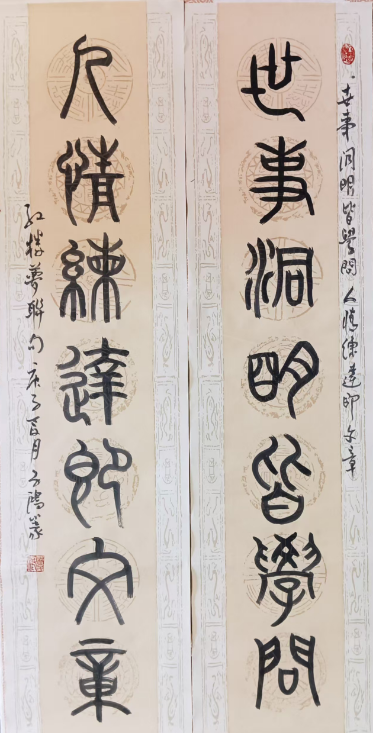 世事洞明皆學問
世事洞明皆學問 人情練達即文章
人情練達即文章
紅樓夢聯句 庚子 月